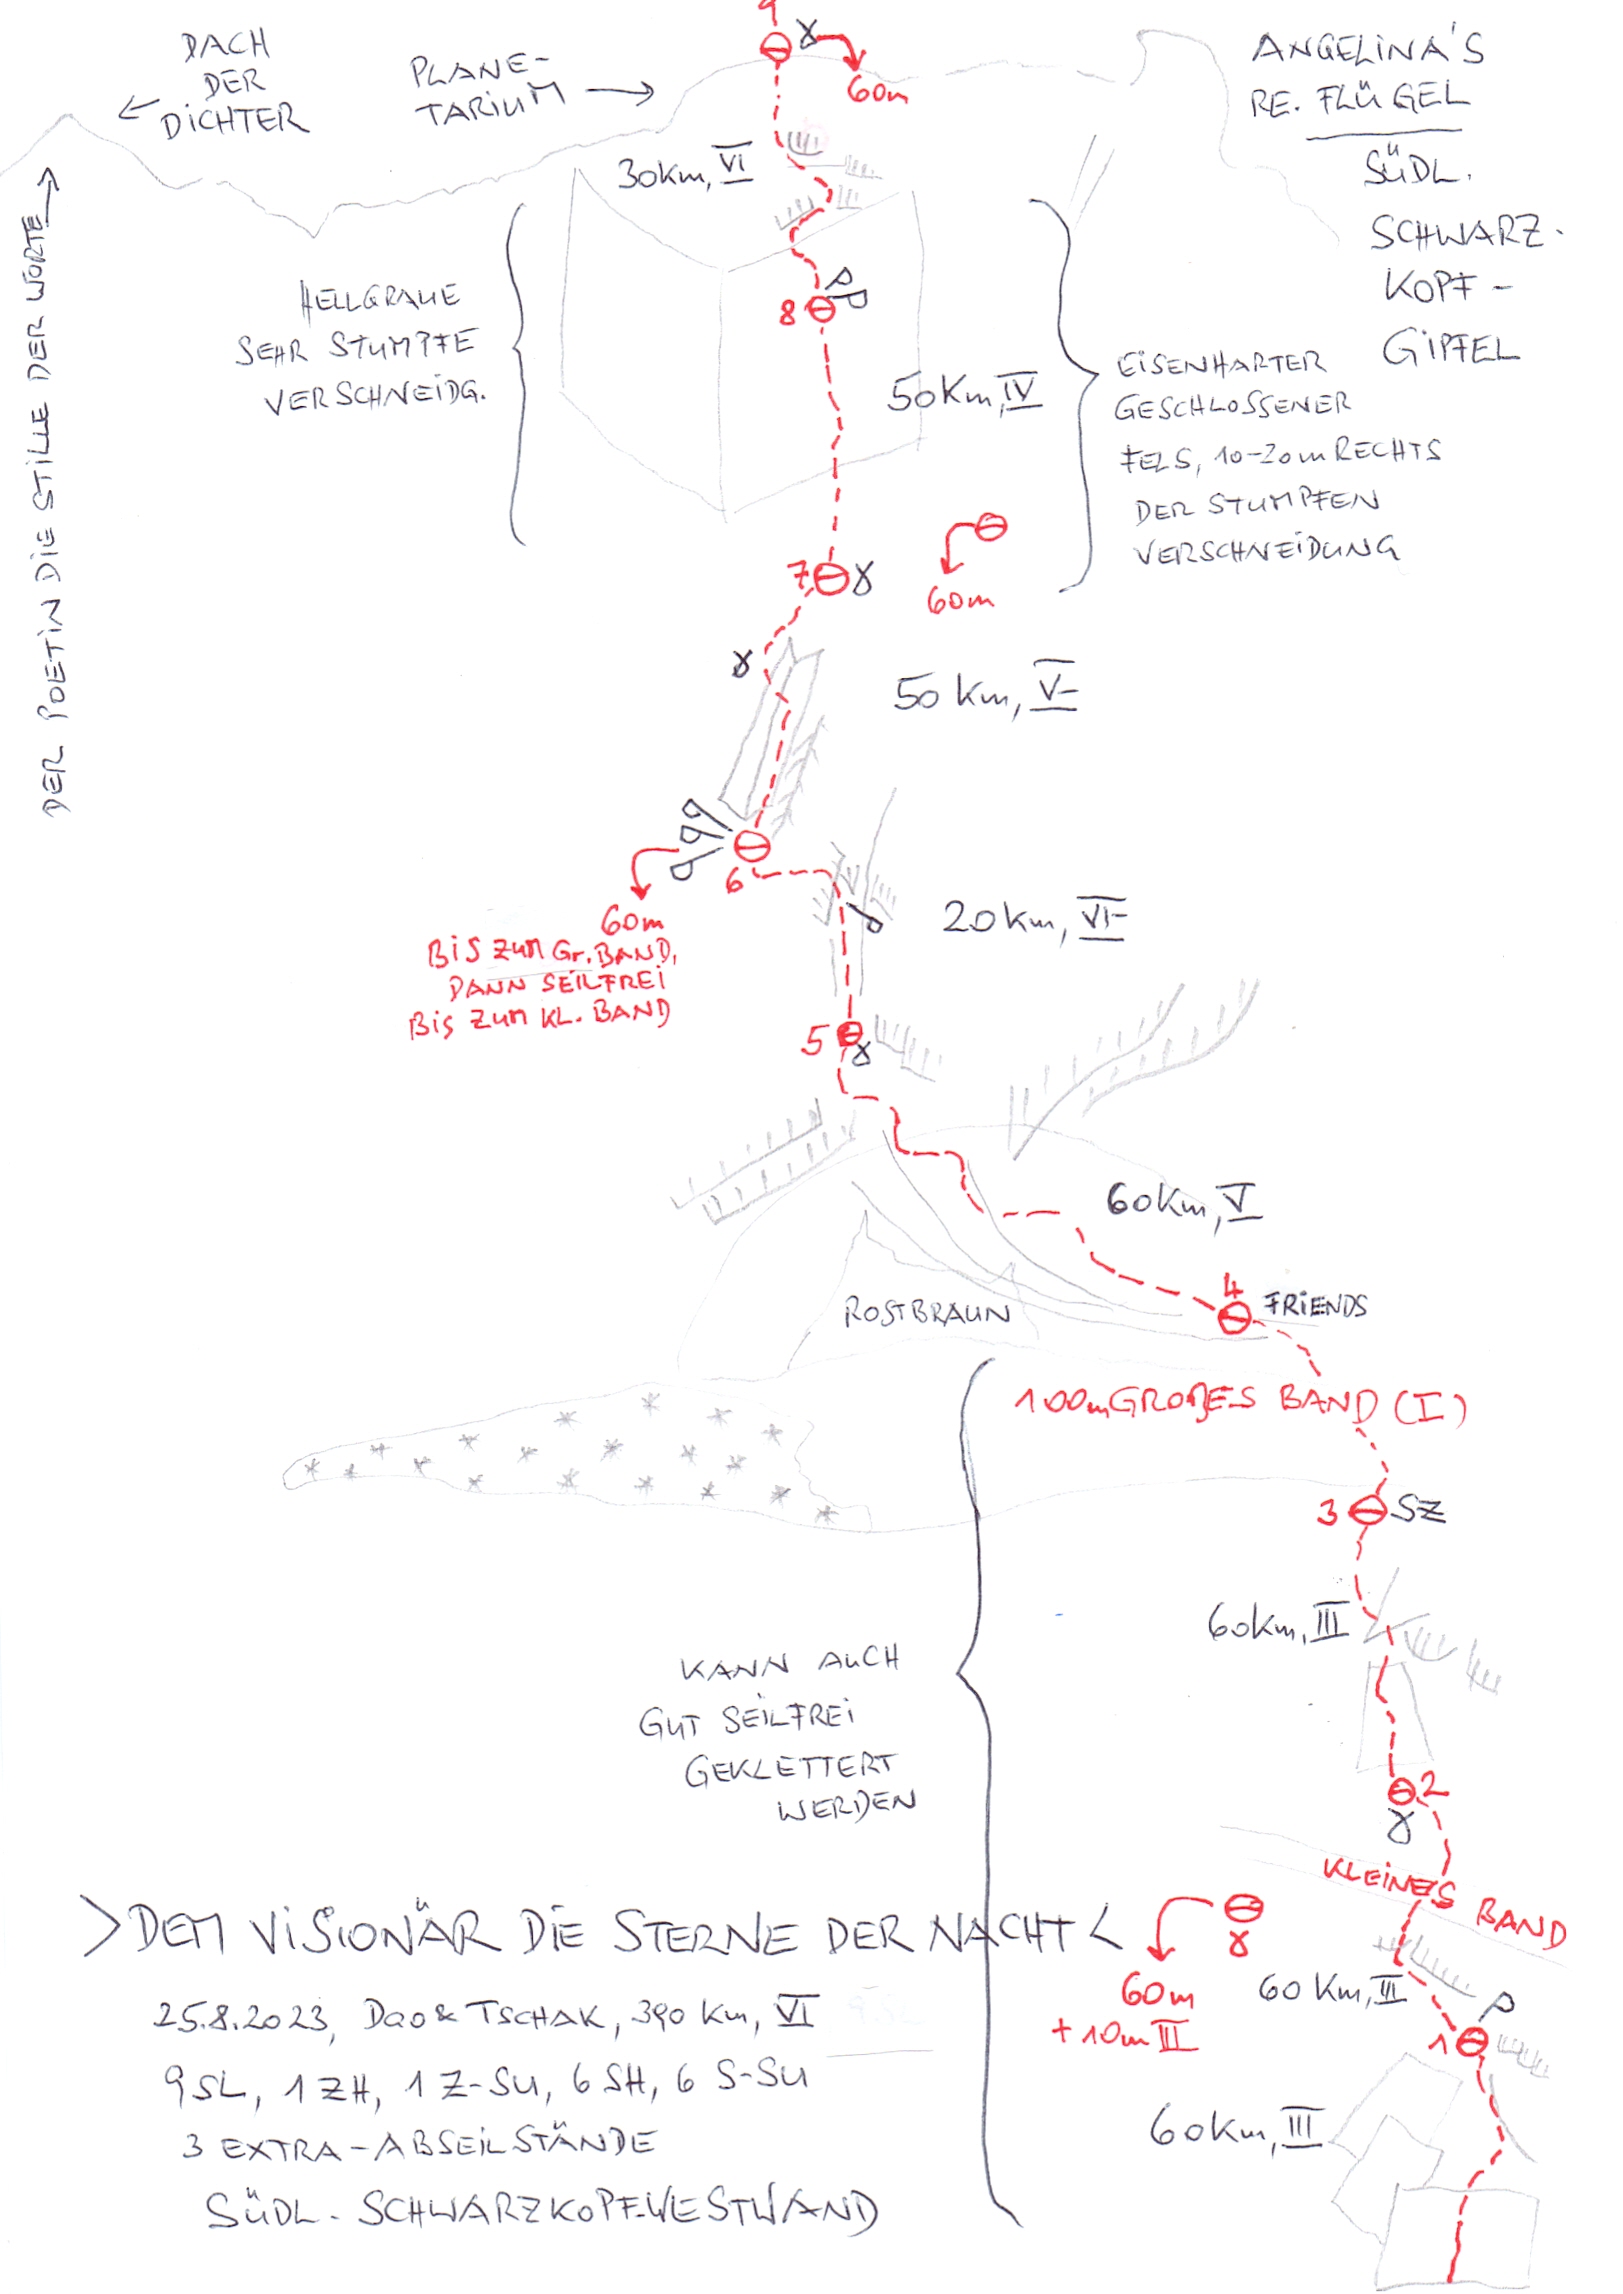 9
DACH
DER
DICHTER
PLANE-
TARIUM
60m
ANGELINA'S
RE. FLÜGEL
SÜDL.
SCHWARZ-
KOPF-
GIPFEL
30Km, VI
DER POETIN DIE STILLE DER WORTE
HELLGRAUE
SEHR STUMPFE
VERSCHNEIDG.
8
50Km, IV
EISENHARTER
GESCHLOSSENER
FELS, 10-20m RECHTS
DER STUMPFEN
VERSCHNEIDUNG
7
60m
50 Km, V-
6
60m
BIS ZUM Gr. BAND,
DANN SEILFREI
BIS ZUM KL. BAND
20Km, VI-
5
60Km, V
4
FRIENDS
ROSTBRAUN
100m GROßES BAND (I)
3
SZ
60Km, III
KANN AUCH
GUT SEILFREI
GEKLETTERT
WERDEN
2
KLEINES BAND
>DEM VISIONÄR DIE STERNE DER NACHT<
60m
+10m III
60 Km, II
1
25.8.2023, Dao & TSCHAK, 390 Km, VI
9 SL, 1 ZH, 1 Z-SU, 6 SH, 6 S-SU
3 EXTRA-ABSEILSTÄNDE
SÜDL. SCHWARZKOPF-WESTWAND
60Km, III